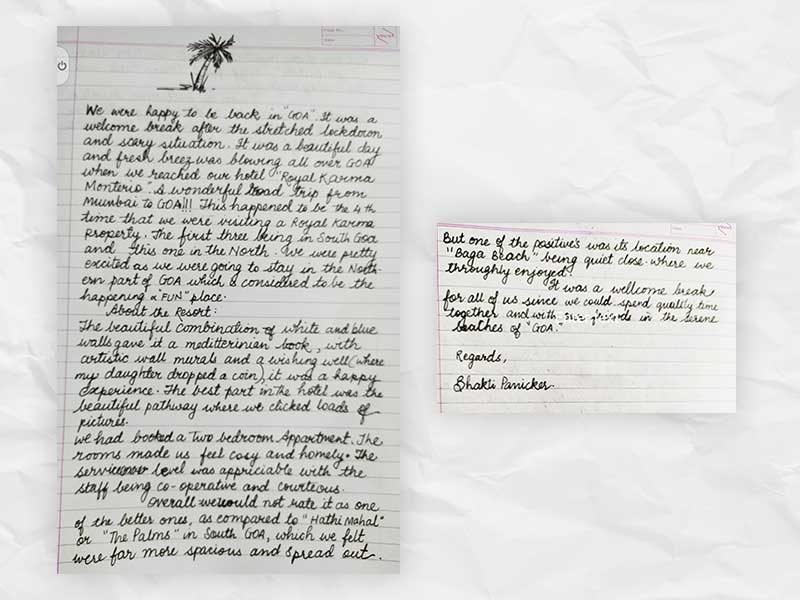 We were happy to be back in "GOA". It was a
welcome break after the stretched lockdown
and scary situation. It was a beautiful day
and fresh breez was blowing all over GOA
when we reached our hotel "Royal Karma
Monterio". A wonderful Road trip from
Mumbai to GOA!!! This happened to be the 4th
time that we were visiting a Royal Karma
property. The first three being in South Goa
and this one in the North. We were pretty
excited as we were going to stay in the North-
ern part of GOA which is considered to be the
happening & "FUN" place.
About the Resort:
The beautiful combination of white and blue
walls gave it a meditterinian look, with
artistic wall murals and a wishing well (where
my daughter dropped a coin), it was a happy
experience. The best part in the hotel was the
beautiful pathway where we clicked loads of
pictures.
We had booked a Two bedroom Appartment. The
rooms made us feel cosy and homely. The
service level was appriciable with the
staff being co-operative and courteous.
Overall we would not rate it as one
of the better ones, as compared to "Hathi Mahal"
or "The Palms" in South GOA, which we felt
were far more spacious and spread out.
But one of the positive's was its location near
"Baga Beach" being quiet close. where we
throughly enjoyed.
It was a wellcome break
for all of us since we could spend quality time
together and with our friends in the serene
beaches of "GOA."
Regards,
Shakti Panicker.